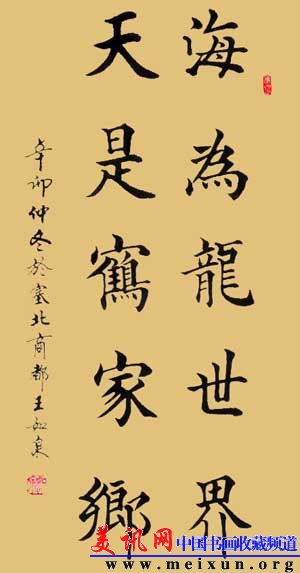 海為龍世界
天是鶴家鄉
辛卯仲冬於塞北商都王
美讯网
中国书画收藏频道
www.meixun.org